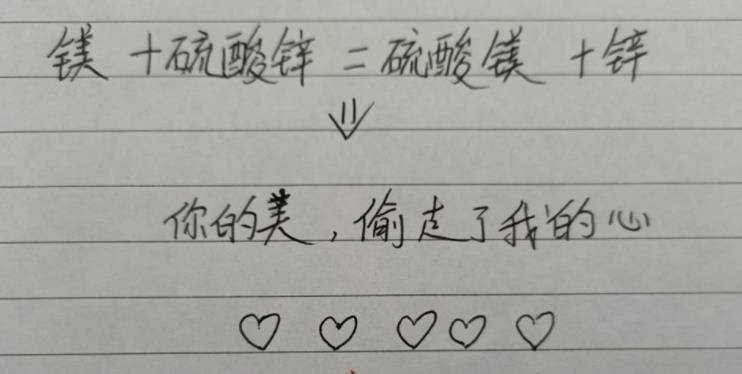 镁+硫酸锌=硫酸镁+锌
⇓
你的美,偷走了我的心
♡ ♡ ♡ ♡ ♡